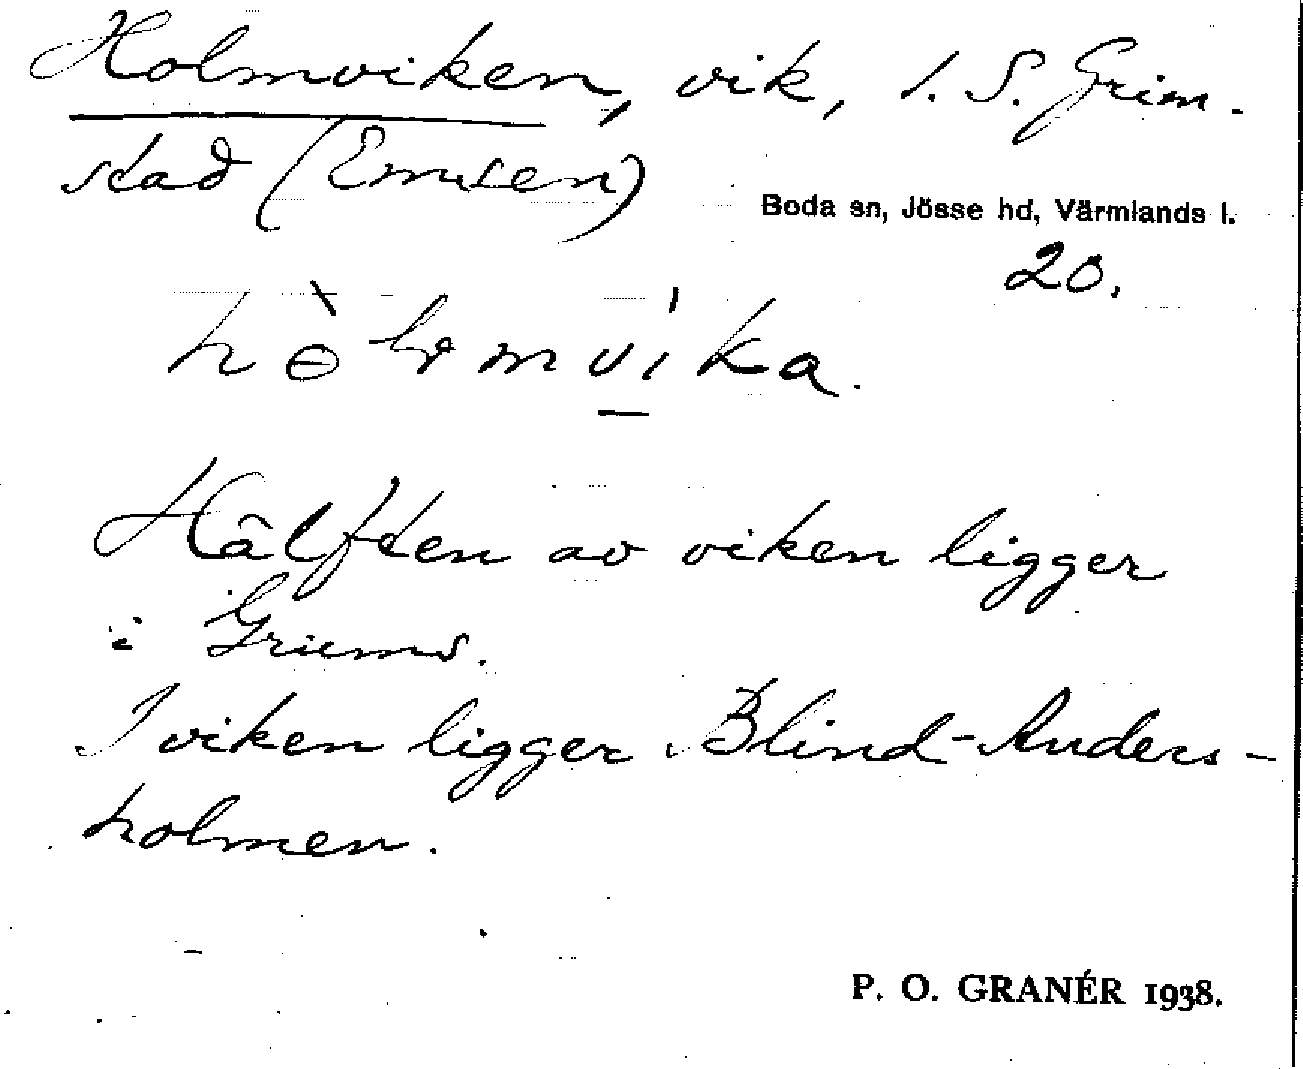 Holmviken, vik, 1. S. Grim-
stad (Emsen)
Boda sn, Jösse hd, Värmlands l.
20.
Hälften av viken ligger
i Grums.
I viken ligger Blind-Anders-
holmen.
P. O. GRANÉR 1938.